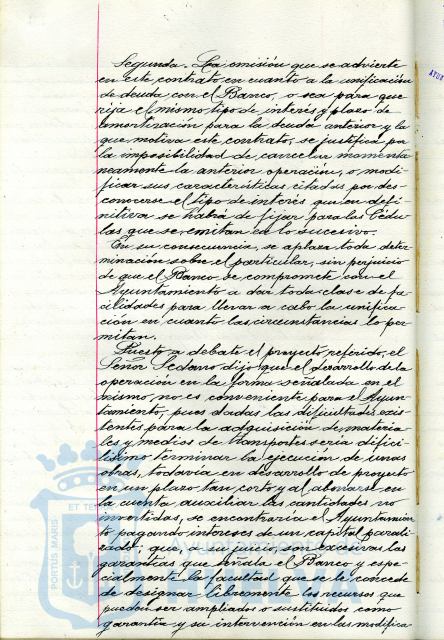 Segunda. La omisión que se advierte
en este contrato en cuanto a la unificación
de deuda con el Banco, o sea para que
rija el mismo tipo de interés y plazo de
amortización para la deuda anterior y la
que motiva este contrato, se justifica por
la imposibilidad de cancelar momenta
neamente la anterior operación, o modi
ficar sus características citadas por des-
conocerse el tipo de interés que en defi-
nitiva se habrá de fijar para las Cédu
las que se emitan en lo sucesivo.
En su consecuencia, se aplaza toda deter
minación sobre el particular, sin perjuicio
de que el Banco se compromete con el
Ayuntamiento a dar toda clase de fa
cilidades para llevar a cabo la unifica
ción en cuanto las circunstancias lo per
mitan.
Puesto a debate el proyecto referido, el
Señor Sedano dijo que el desarrollo de la
operación en la forma señalada en el
mismo, no es conveniente para el Ayun
tamiento, pues dadas las dificultades exis
tentes para la adquisición de materia
les y medios de transportes sería difici
lísimo terminar la ejecución de unas
obras, todavía en desarrollo de proyecto
en un plazo tan corto y al abonarse en
la cuenta auxiliar las cantidades no
invertidas, se encontraría el Ayuntamien
to pagando intereses de un capital parali
zado; que, a su juicio son excesivas las
garantías que señala el Banco y espe-
cialmente la facultad que se le concede
de designar libremente los recursos que
puedan ser ampliados o sustituidos como
garantía y su intervención en las modifica
AYUN
PORTUS MARIS
ET TE
Ayuntamiento de